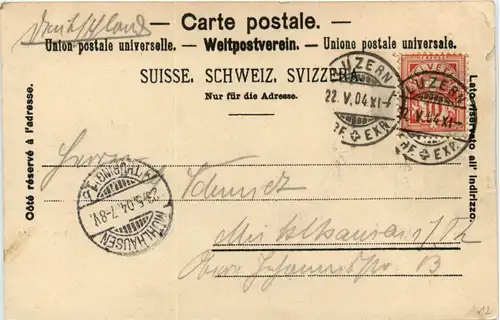 Deutschland
— Carte postale. —
Union postale universelle. — Weltpostverein. — Unione postale universale.
SUISSE. SCHWEIZ. SVIZZERA.
Nur für die Adresse.
Côté réservé à l'adresse.
Lato riservato all' indirizzo.
LUZERN
22.V.04.XI-
BF EXP.
LUZERN
22.V.04.XI-
BF EXP.
10
Herrn
Schmidt
Mühlhausen i/Th
Obere Johannesstr. 13
MÜHLHAUSEN
23.5.04.7-8V.
(THÜRING.)